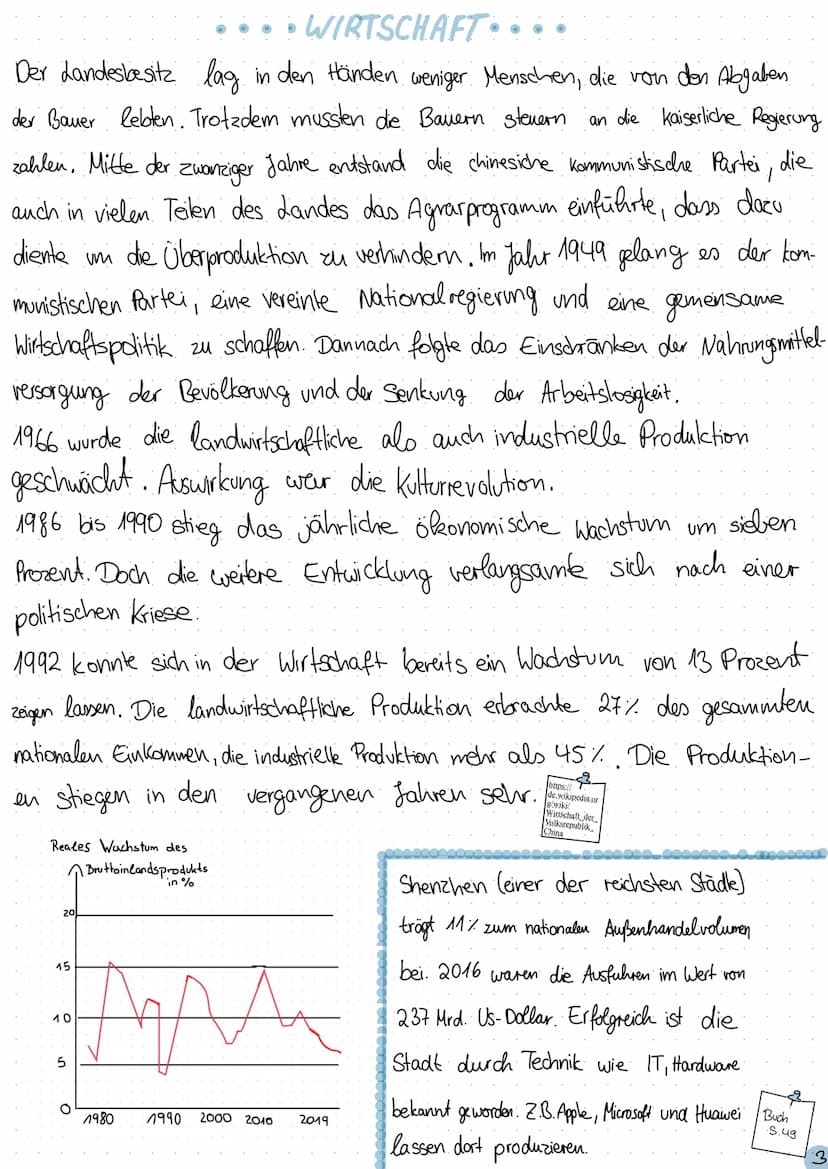 WIRTSCHAFT
Der Landesbesitz lag in den Händen weniger Menschen, die von den Abgaben
der Bauer lebten. Trotzdem mussten die Bauern steuern an die kaiserliche Regierung
zahlen. Mitte der zwanziger Jahre entstand die chinesiche kommunistische Partei, die
auch in vielen Teilen des Landes das Agrarprogramm einführte, dass dazu
diente um die Überproduktion zu verhindern. Im Jahr 1949 gelang es der kom-
munistischen Partei, eine vereinte Nationalregierung und eine gemeinsame
Wirtschaftspolitik zu schaffen. Dannach folgte das Einschränken der Nahrungsmittel-
versorgung der Bevölkerung und der Senkung der Arbeitslosigkeit.
1966 wurde die landwirtschaftliche als auch industrielle Produktion
geschwächt. Auswirkung war die Kulturrevolution.
1986 bis 1990 stieg das jährliche ökonomische Wachstum um sieben
Prozent. Doch die weitere Entwicklung verlangsamte sich nach einer
politischen Kriese.
1992 konnte sich in der Wirtschaft bereits ein Wachstum von 13 Prozent
zeigen lassen. Die landwirtschaftliche Produktion erbrachte 27% des gesammten
nationalen Einkommen, die industrielle Produktion mehr als 45%. Die Produktion-
en stiegen in den vergangenen Jahren sehr.
https://
de.wikipedia.or
g/wiki/
Wirtschaft_der_
Volksrepublik_
China
Reales Wachstum des
Bruttoinlandsprodukts
in %
20
15
10
5
0
1980 1990 2000 2010 2019
Shenzhen (einer der reichsten Städte)
trägt 11% zum nationalen Außenhandelvolumen
bei. 2016 waren die Ausfuhren im Wert von
237 Mrd. US-Dollar. Erfolgreich ist die
Stadt durch Technik wie IT, Hardware
bekannt geworden. Z.B. Apple, Microsoft und Huawei
lassen dort produzieren.
Buch
S.49
3